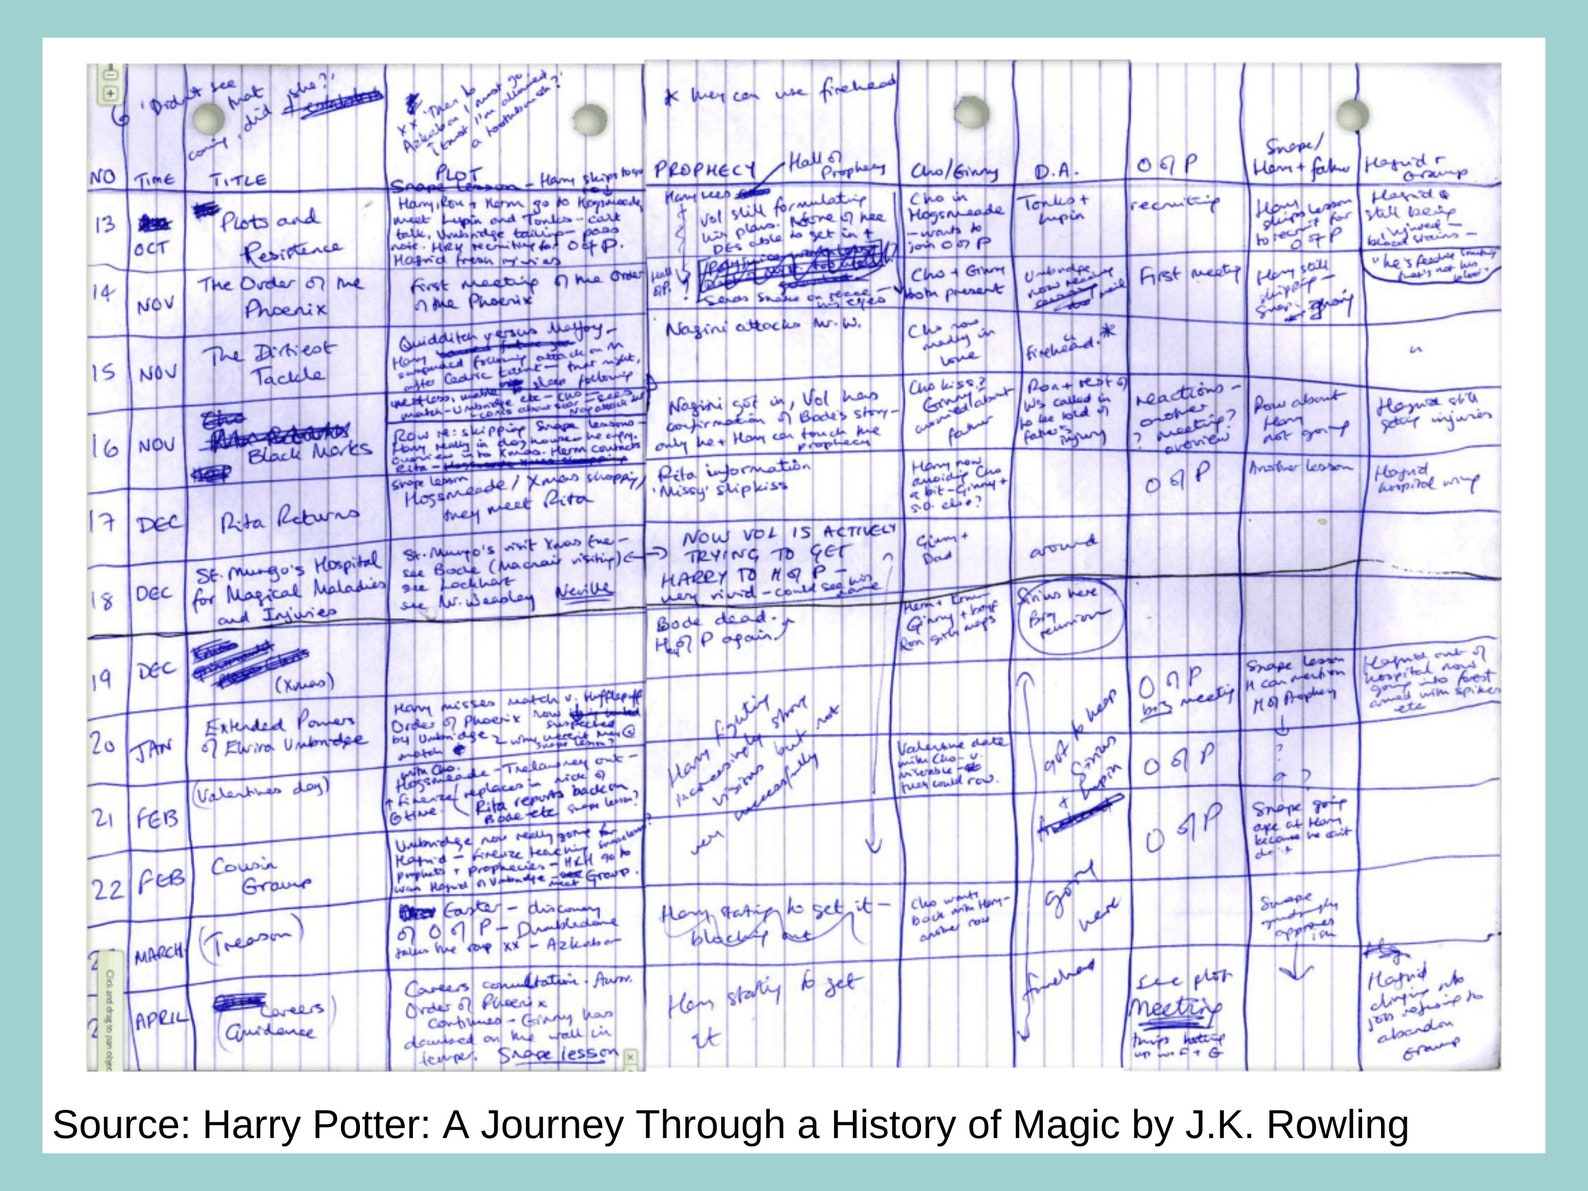 'Didn't see that
coming, did she?'
xx 'Then to
Azkaban I must go
I trust I'm allowed
a toothbrush?'
* they can use firehead
NO TIME TITLE PLOT PROPHECY Hall of Prophecy Cho/Ginny D.A. O of P Snape/ Harry + father Hagrid + Grawp
13 OCT Plots and Resistence
Snape lesson - Harry skips to go
Harry, Ron + Herm go to Hogsmeade,
meet Lupin and Tonks - can't
talk, Umbridge tailing - pass
note. HRH recruiting for O of P.
Hagrid fresh injuries
Harry sees
Vol still formulating
his plans. None of the
DEs able to get in +
Cho in
Hogsmeade
- wants to
join O of P
Tonks +
Lupin
recruiting
Harry
skips lesson
to recruit for
O of P
Hagrid
still being
injured -
blood stains -
14 NOV The Order of the Phoenix
First meeting of the Order
of the Phoenix
Hall of P. ?
Cho + Ginny
both present
Umbridge
now reading
mail
First meeting
Harry still
skipping -
15 NOV The Dirtiest Tackle
Quidditch versus Malfoy -
Harry
suspended following attack on M
after Cedric taunt - that night,
restless, sleep following
match - Umbridge etc - Cho -
Nagini attacks Mr. W.
Cho now
madly in
love
firehead. *
"
16 NOV Black Marks
Row re: skipping Snape lessons -
Harry really in doghouse -
to Xmas. Herm contacts
Rita -
Nagini got in, Vol has
confirmation of Bode's story -
only he + Harry can touch the
prophecy
Cho kiss?
Ginny
worried about
father
Ron + rest of
Ws called in
to be told of
father's
injury
reactions -
another
meeting?
? overview
Row about
Harry
not going
Hagrid still
getting injuries
17 DEC Rita Returns
Snape lesson
Hogsmeade / Xmas shopping/
they meet Rita
Rita information
'Missy' slipkiss
Harry now
avoiding Cho
a bit - Ginny +
s.o. else?
O of P
Another lesson
Hagrid
hospital wing
18 DEC St. Mungo's Hospital for Magical Maladies and Injuries
St. Mungo's visit Xmas Eve -
see Bode (Macnair visiting)
see Lockhart
see Mr. Weasley Neville
NOW VOL IS ACTIVELY
TRYING TO GET
HARRY TO H of P -
very vivid - could see his
Ginny +
Dad
around
19 DEC (Xmas)
Bode dead.
H of P again
Herm + Krum -
Ginny + boyf
Ron
Sirius here
Big
reunion
20 JAN Extended Powers of Elvira Umbridge
Harry misses match v. Hufflepuff
Order of Phoenix now
suspected
by Umbridge
match
Snape lesson?
Harry fighting
increasingly strong
visions but not
very successfully
O of P
big meeting
Snape lesson
H can mention
H of Prophecy
Hagrid out of
hospital now
going into forest
armed with spikes
etc
21 FEB (Valentines day)
with Cho.
Hogsmeade - Trelawney out -
Firenze replaces in nick of
time -
Rita reports back on
Bode etc Snape lesson?
Valentine date
with Cho - v.
miserable -
they could row.
got to keep
Sirius
+ Lupin
O of P
?
?
22 FEB Cousin Grawp
Umbridge now really going for
Hagrid - Firenze teaching
prophets + prophecies - HRH go to
warn Hagrid of Umbridge - meet Grawp.
going
here
O of P
Snape going
ape at Harry
because he can't
do it
2 MARCH (Treason)
Easter - discovery
of O of P - Dumbledore
takes the rap xx - Azkaban
Harry starting to get it -
blacking out
Cho wants
back with Harry -
another row
Snape
grudgingly
approves
ish
2 APRIL (Careers Guidance)
Careers consultation. Auror.
Order of Phoenix
continues - Ginny has
on the wall in
temper. Snape lesson
Harry starting to get
it
firehead
See plot
Meeting
things hotting
up w. F + G
Hagrid
clinging into
job refusing to
abandon
Grawp
Source: Harry Potter: A Journey Through a History of Magic by J.K. Rowling